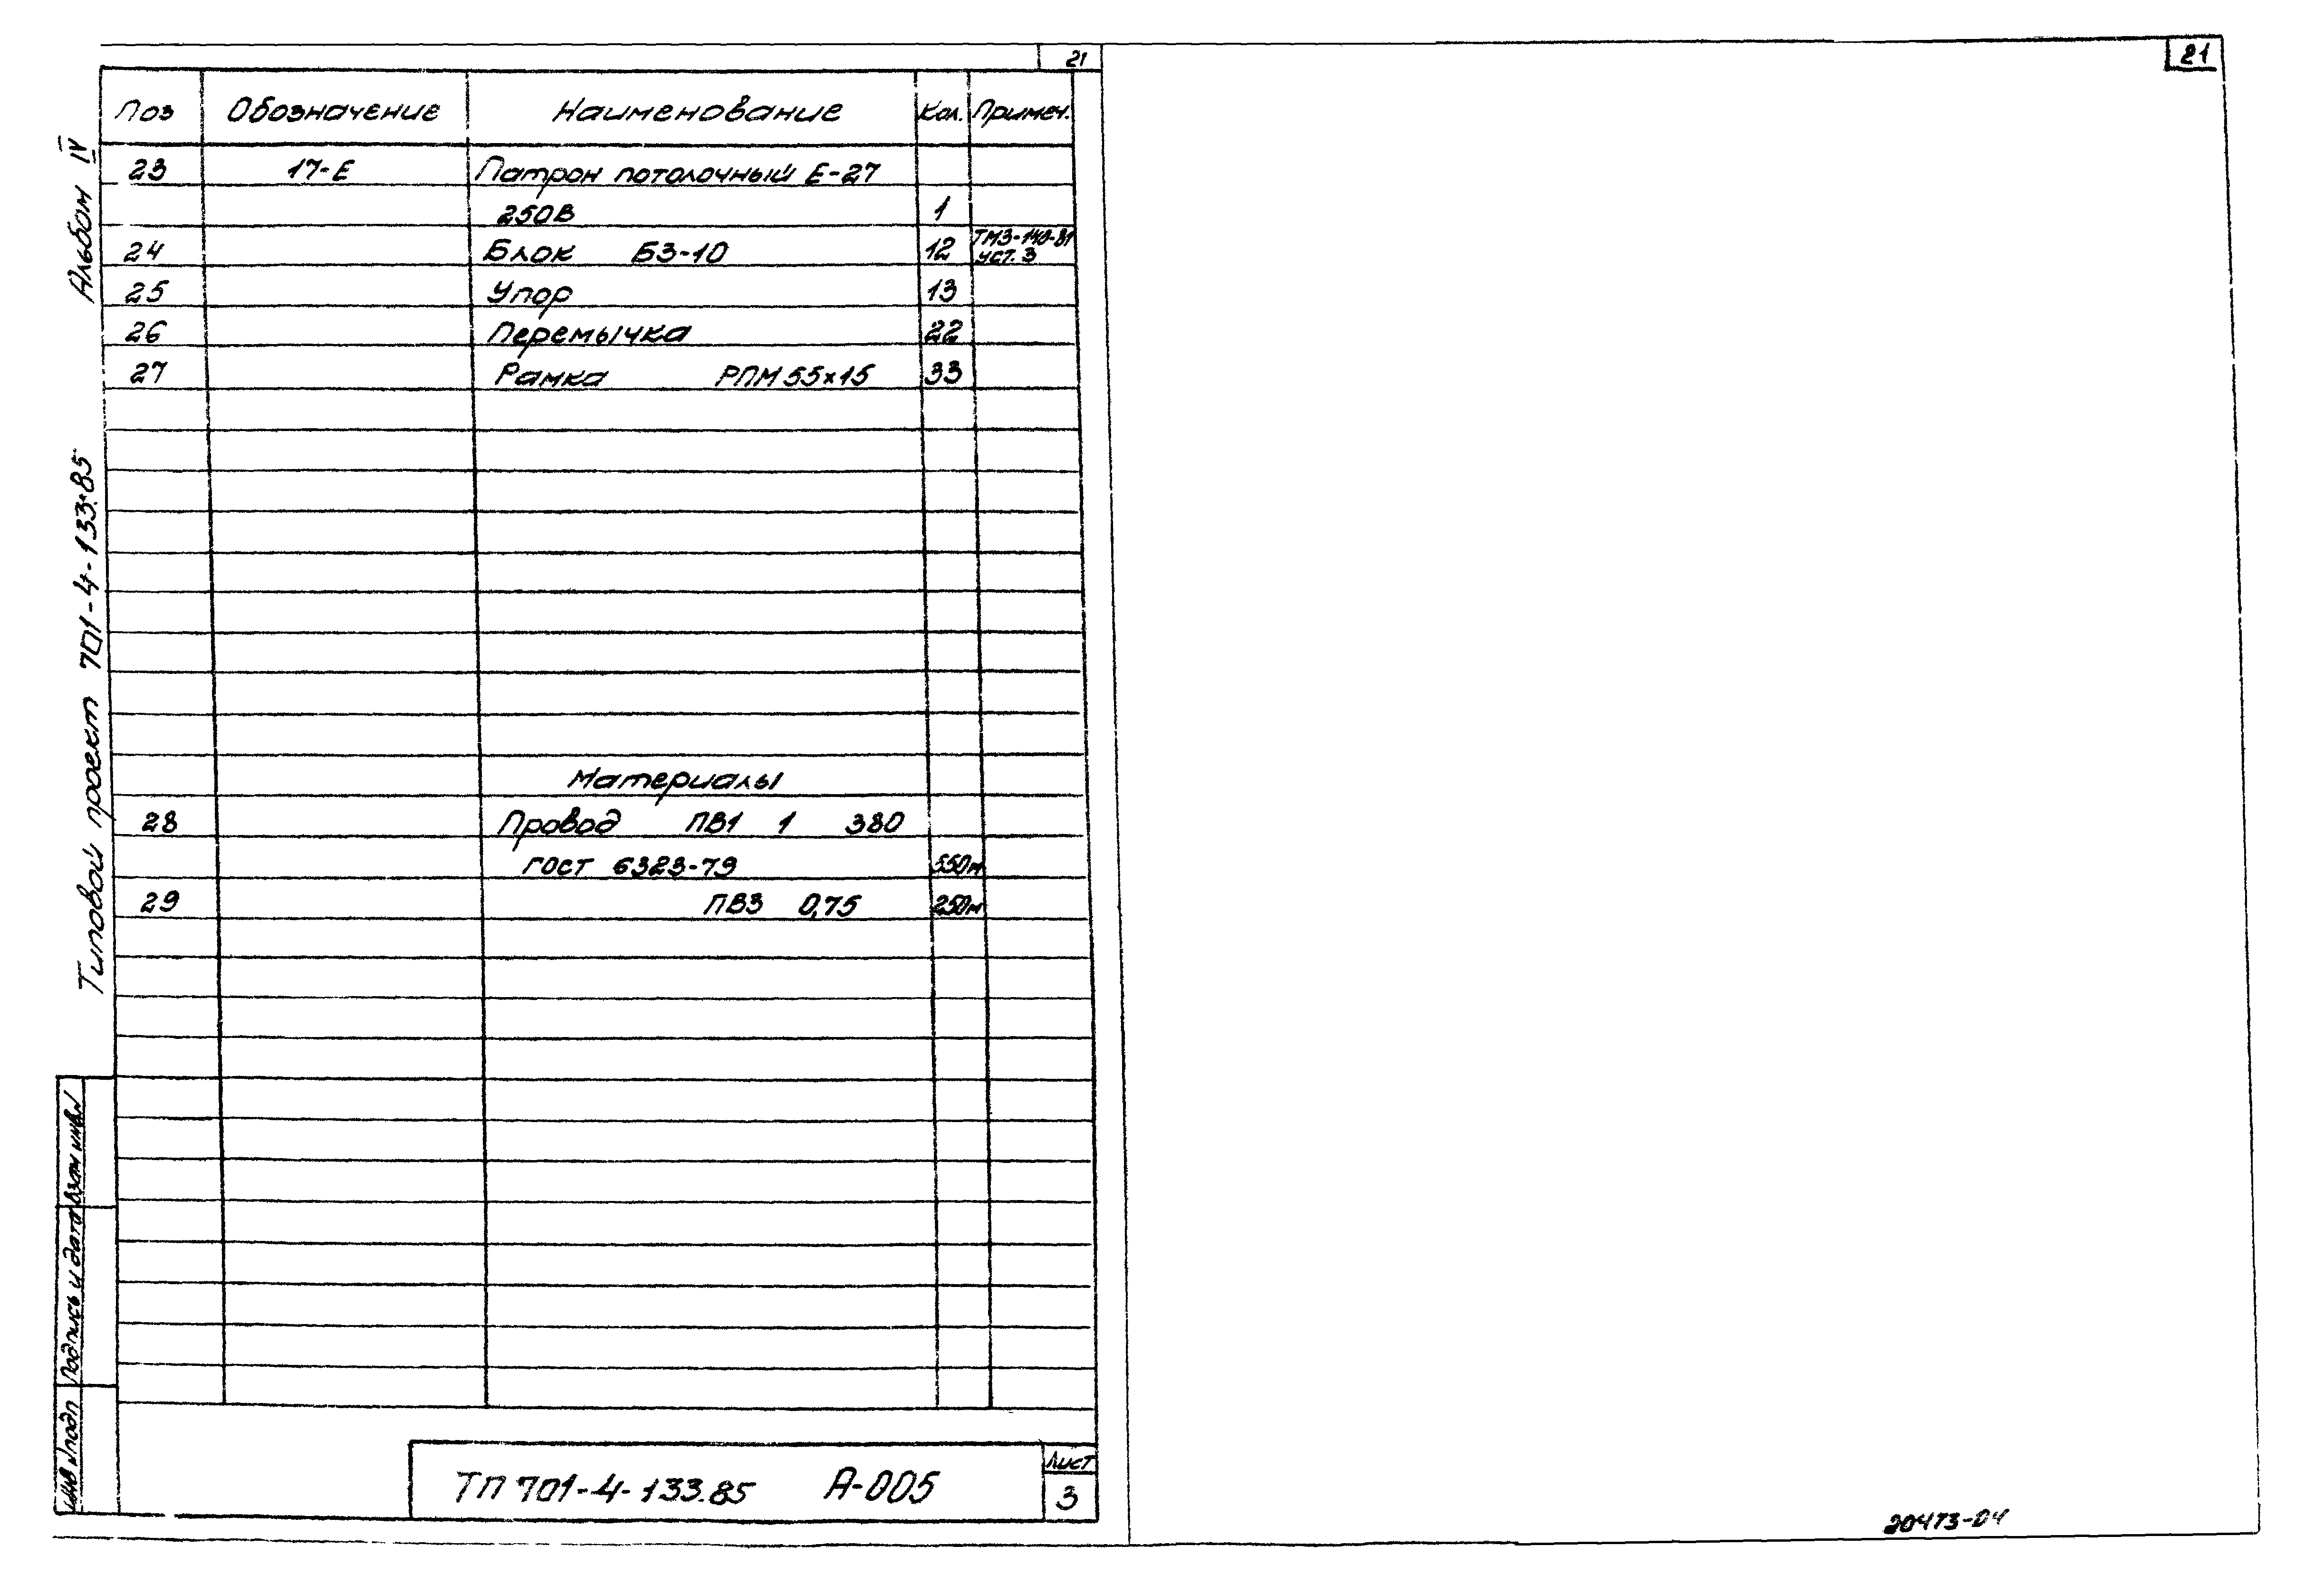 21
21
Поз Обозначение Наименование Кол. Примеч.
23 17-Е Патрон потолочный Е-27
250В 1
24 Блок БЗ-10 12 ТМЗ-148-81 уст. 3
25 Упор 13
26 Перемычка 22
27 Рамка РПМ 55х15 33
Материалы
28 Провод ПВ1 1 380
ГОСТ 6323-79 550м
29 ПВ3 0,75 250м
Альбом IV
Типовой проект 701-4-133.85
Взам инв N
Подпись и дата
Инв N подл
ТП 701-4-133.85 А-005
Лист
3
20473-04